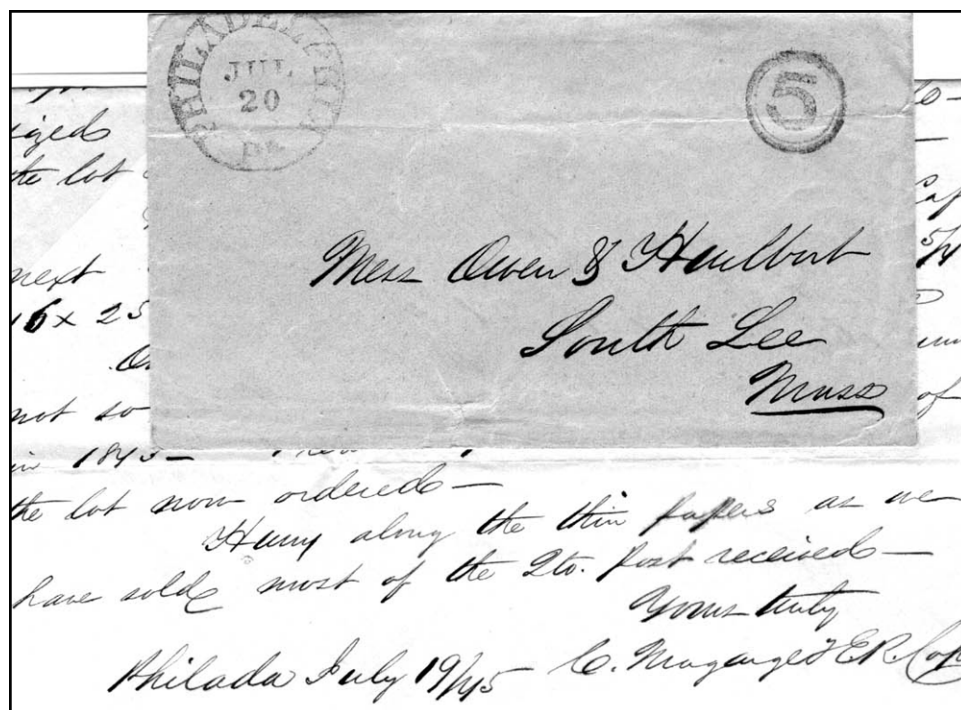 PHILADELPHIA
JUL
20
Pa.
5
Mess Owen & Hurlbort
South Lee
Mass
the lot
next
16 x 25
not so
of
in 1845 –
the lot now ordered –
Hurry along the thin papers as we
have sold most of the 4to. post received –
Yours truly
Philada July 19/45 C. Megargee